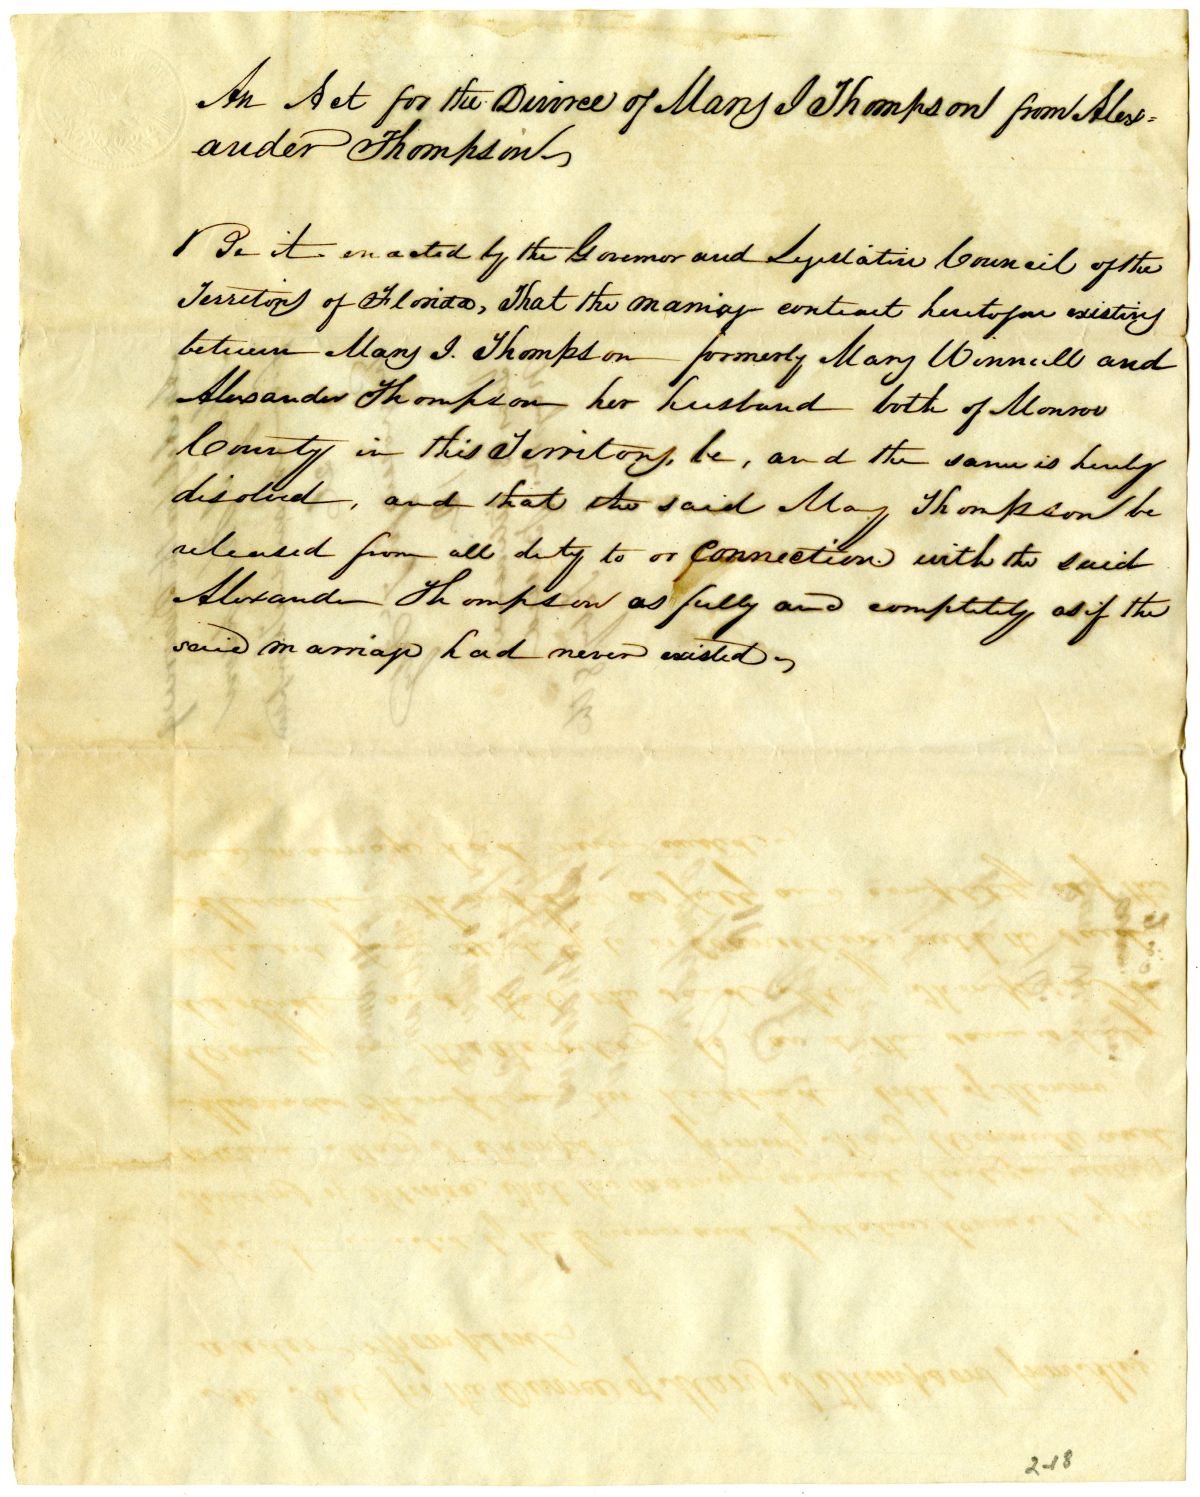 An Act for the Divorce of Mary J Thompson from Alex=
ander Thompson
Be it enacted by the Governor and Legislative Council of the
Territory of Florida, That the marriage contract heretofore existing
between Mary J. Thompson formerly Mary and
Alexander Thompson her husband both of Monroe
County in this Territory, be, and the same is hereby
disolved, and that the said Mary Thompson be
released from all duty to or connection with the said
Alexander Thompson as fully and completely as if the
said marriage had never existed
2-18